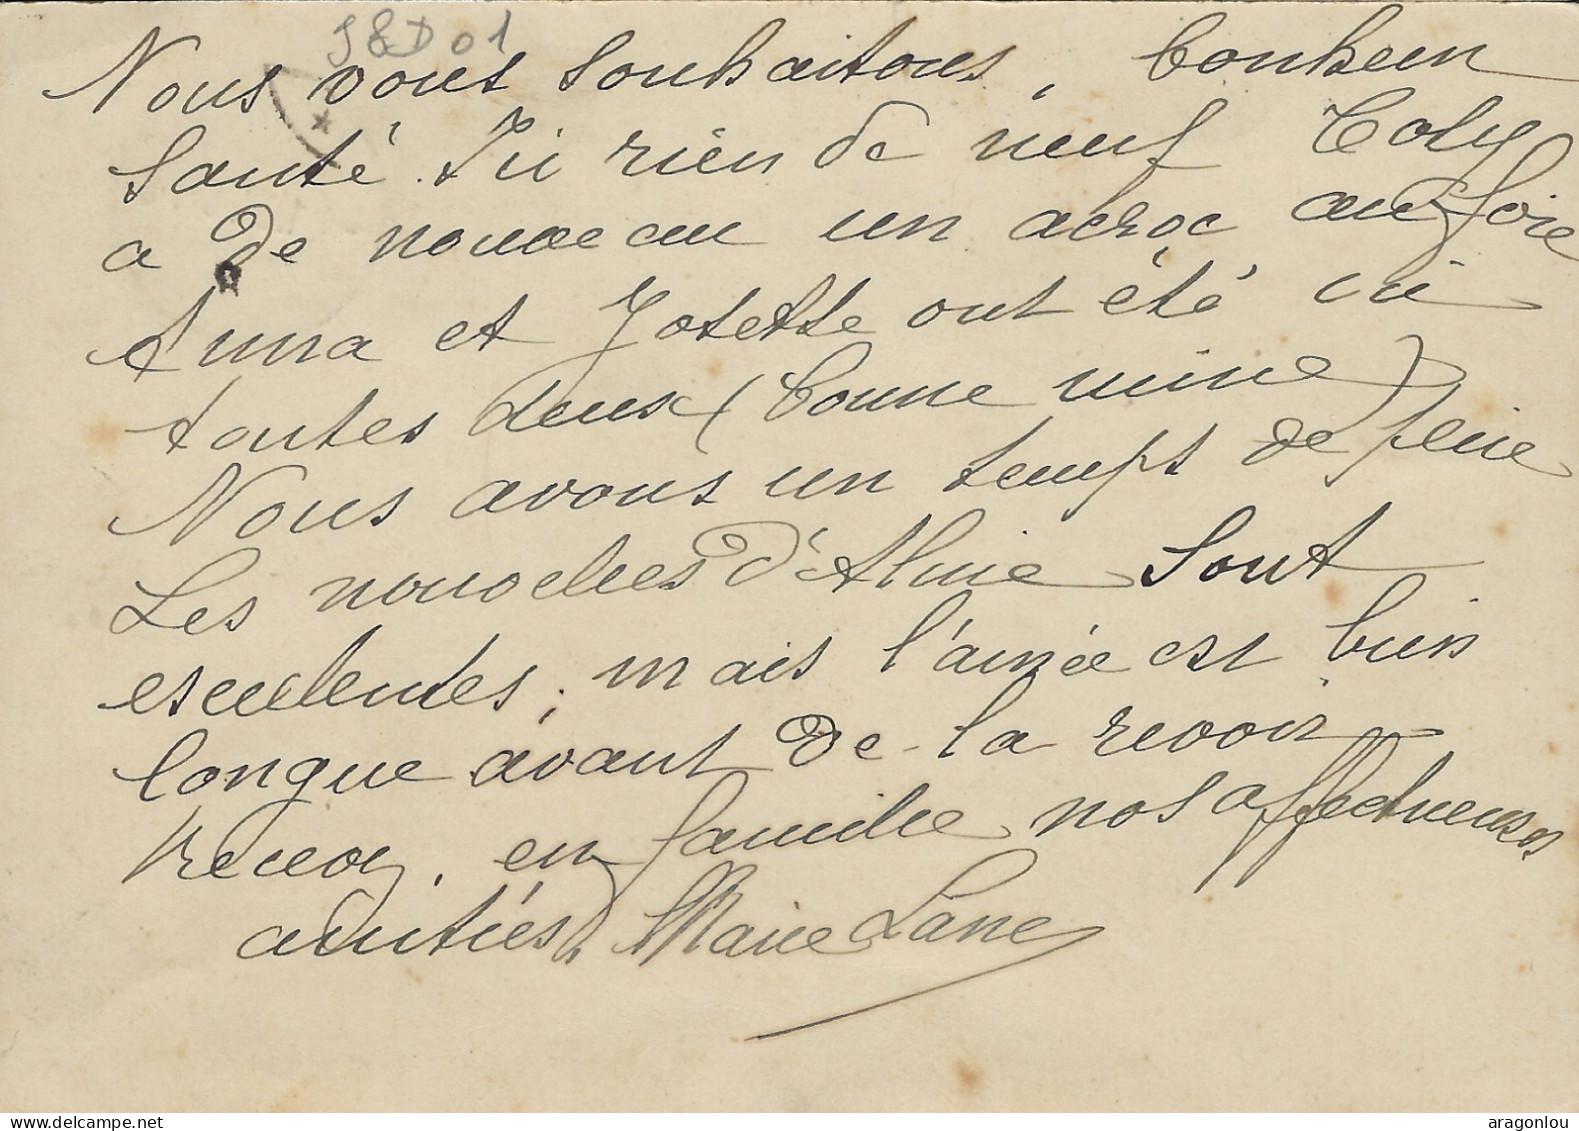 J&D 01
Nous vous souhaitons, bonheur
santé. Ici rien de neuf Coly
a de nouveau un acroc au foie
Anna et Josette ont été ici
toutes deux (bonne mine)
Nous avons un temps de pluie
Les nouvelles d'Aline sont
exelentes, mais l'année est bien
longue avant de la revoir
Recevez, en famille nos affectueuses
amitiés Marie Lane
aragonlou